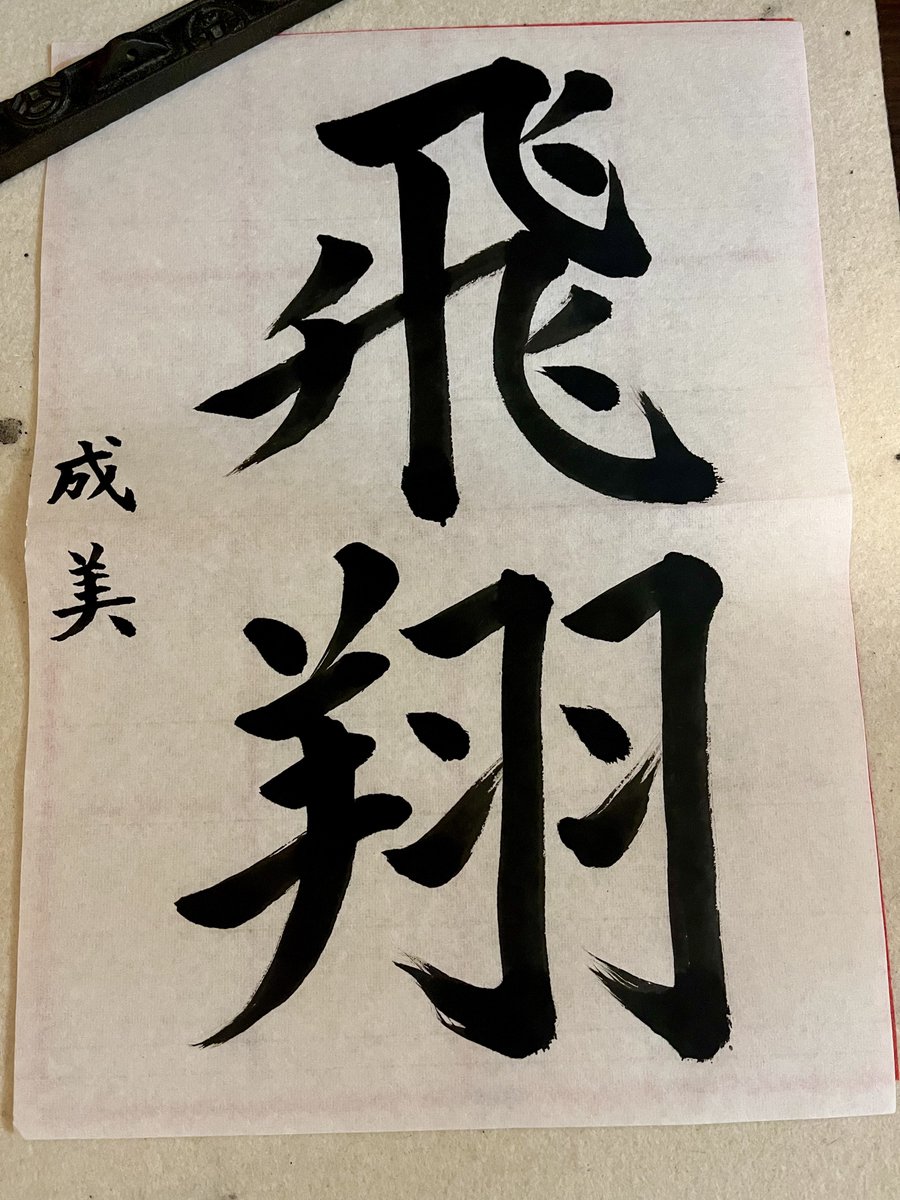 飛翔
成美